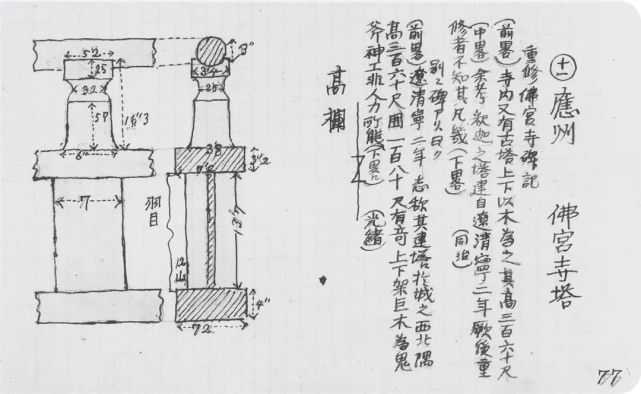 十一 應州 佛宮寺塔
重修佛宮寺碑記
(前畧)寺内又有古塔上下以木為之其高三百六十尺
(中畧)余考釈迦之塔建自遼清寧二年厥後重
修者不知其凡幾(下畧) (同治)
別ニ碑アリ曰ク
(前畧)遼清寧二年 志称其建塔於城之西北隅
高三百六十尺囲一百八十尺有奇上下架巨木為鬼
斧神工非人力所能(下畧) (光緒)
高欄
5.2
25
32
57
1'6"3
6"
7
羽目
3"
3.4
25
3.8
3"2
4"
72
77